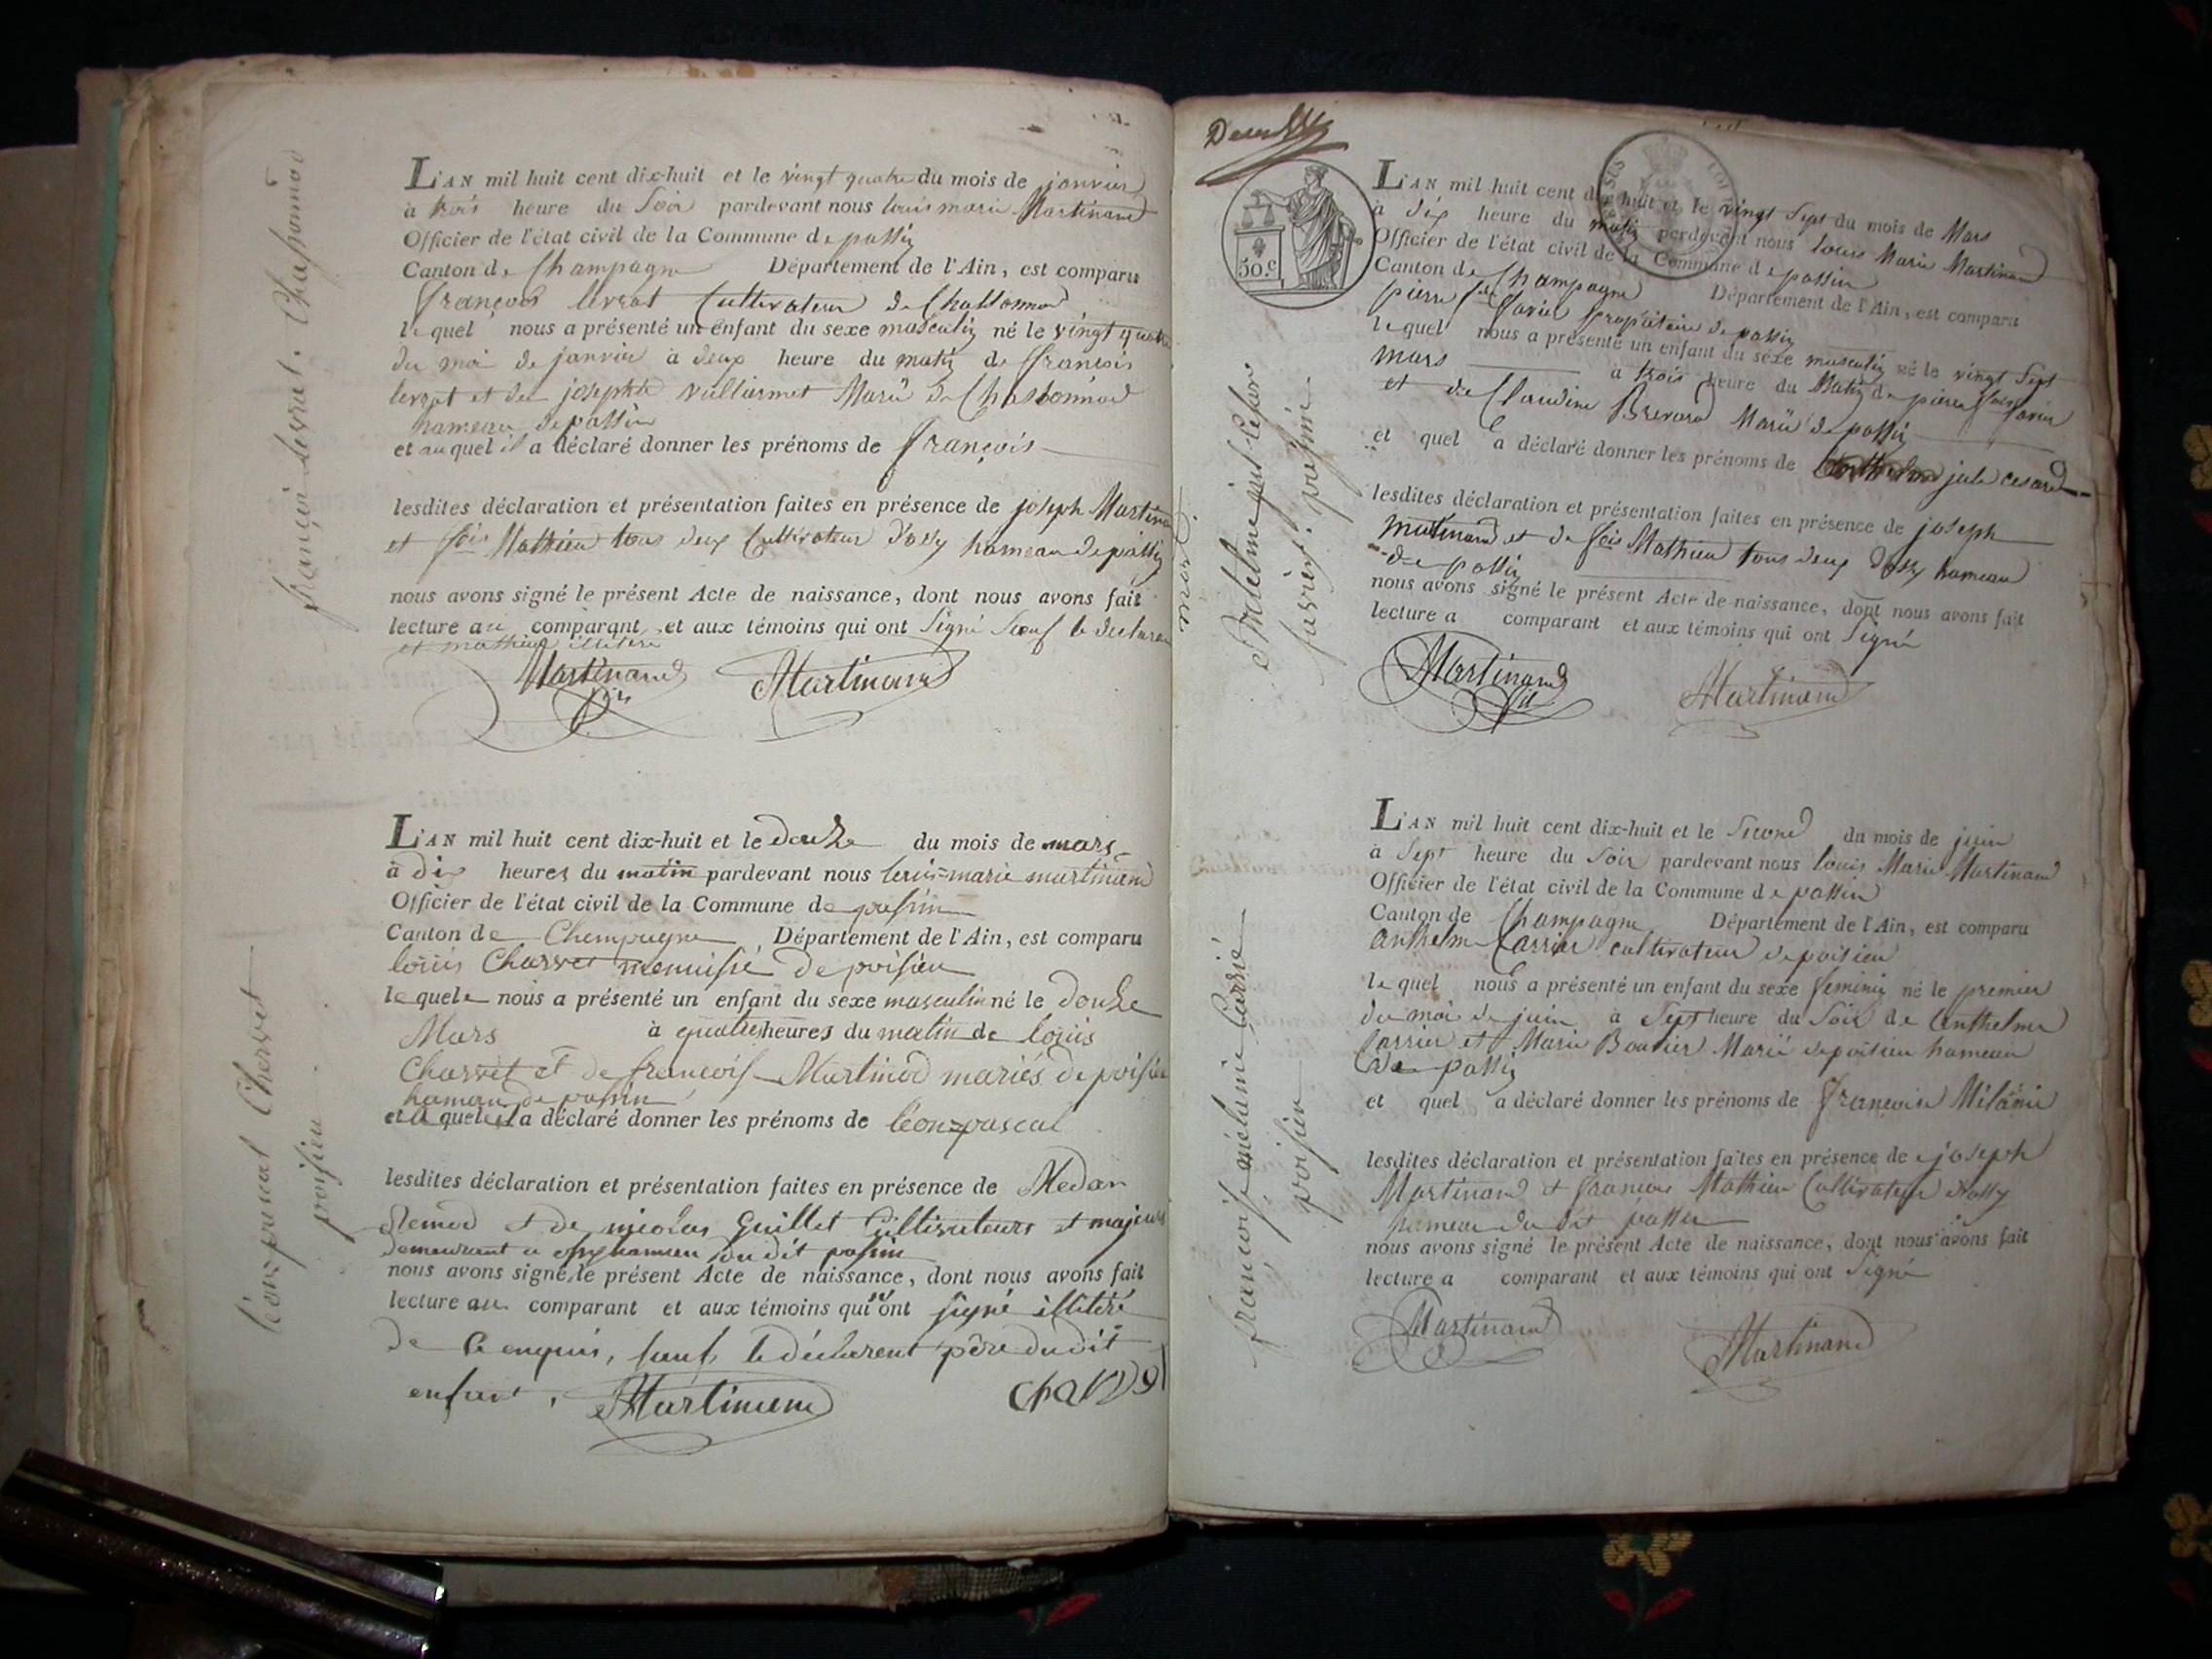 françois Levrat. Chassonnod
L'AN mil huit cent dix-huit et le vingt quatre du mois de janvier
à trois heure du Soir pardevant nous louis marie Martinand
Officier de l'état civil de la Commune de passin
Canton de Champagne Département de l'Ain, est comparu
françois levrat Cultivateur de Chassonnod
le quel nous a présenté un enfant du sexe masculin né le vingt quatre
du moi de janvier à deux heure du matin de françois
levrat et de josephte vuillermet Marié de Chassonnod
hameau de passin
et au quel il a déclaré donner les prénoms de françois
lesdites déclaration et présentation faites en présence de joseph Martinand
et fois Mathieu tous deux Cultivateur d'ossy hameau de passin
nous avons signé le présent Acte de naissance, dont nous avons fait
lecture au comparant et aux témoins qui ont Signé Sauf le declaran
et mathieu illiteré
Martinand Martinand
léonpascal Charvet
poisieu
L'AN mil huit cent dix-huit et le douze du mois de mars
à dix heures du matin pardevant nous louis-marie martinand
Officier de l'état civil de la Commune de passin
Canton de Champagne Département de l'Ain, est comparu
louis Charvet menuisié de poisieu
le quel nous a présenté un enfant du sexe masculin né le douze
Mars à quatre heures du matin de louis
Charvet et de francoise Martinod mariés de poisieu
hamau de passin
et a quel il a déclaré donner les prénoms de léon-pascal
lesdites déclaration et présentation faites en présence de
et de nicolas Guillet Cultivateurs et majeurs
demeurant a hameau du dit passin
nous avons signé le présent Acte de naissance, dont nous avons fait
lecture au comparant et aux témoins qui ont signé illiteré
de Ce enquis, sauf le déclarent père du dit
enfant. Martinand Charvet
50.c
jul-Cesar
favier. passin
L'AN mil huit cent dix-huit et le vingt Sept du mois de Mars
à dix heure du matin pardevant nous louis Marie Martinand
Officier de l'état civil de la Commune de passin
Canton de Champagne Département de l'Ain, est comparu
pierre favier propriétaire de passin
le quel nous a présenté un enfant du sexe masculin né le vingt Sept
mars à trois heure du Matin de pierre favier
et de Claudine Brevard Marié de passin
et quel a déclaré donner les prénoms de jule cesard
lesdites déclaration et présentation faites en présence de joseph
Martinand et de fois Mathieu tous deux d'ossy hameau
de passin
nous avons signé le présent Acte de naissance, dont nous avons fait
lecture a comparant et aux témoins qui ont Signé
Martinand fils Martinand
françoise mélanie Carrié
poisieu
L'AN mil huit cent dix-huit et le Second du mois de juin
à Sept heure du Soir pardevant nous louis Marie Martinand
Officier de l'état civil de la Commune de passin
Canton de Champagne Département de l'Ain, est comparu
anthelme Carrier cultivateur de poisieu
le quel nous a présenté un enfant du sexe feminin né le premier
du moi de juin à Sept heure du Soir de anthelme
Carrier et Marie Bouvier Marié de poisieu hameau
de passin
et quel a déclaré donner les prénoms de françoise Mélanie
lesdites déclaration et présentation faites en présence de joseph
Martinand et francois Mathieu Cultivateur d'ossy
hameau du dit passin
nous avons signé le présent Acte de naissance, dont nous avons fait
lecture a comparant et aux témoins qui ont Signé
Martinand Martinand